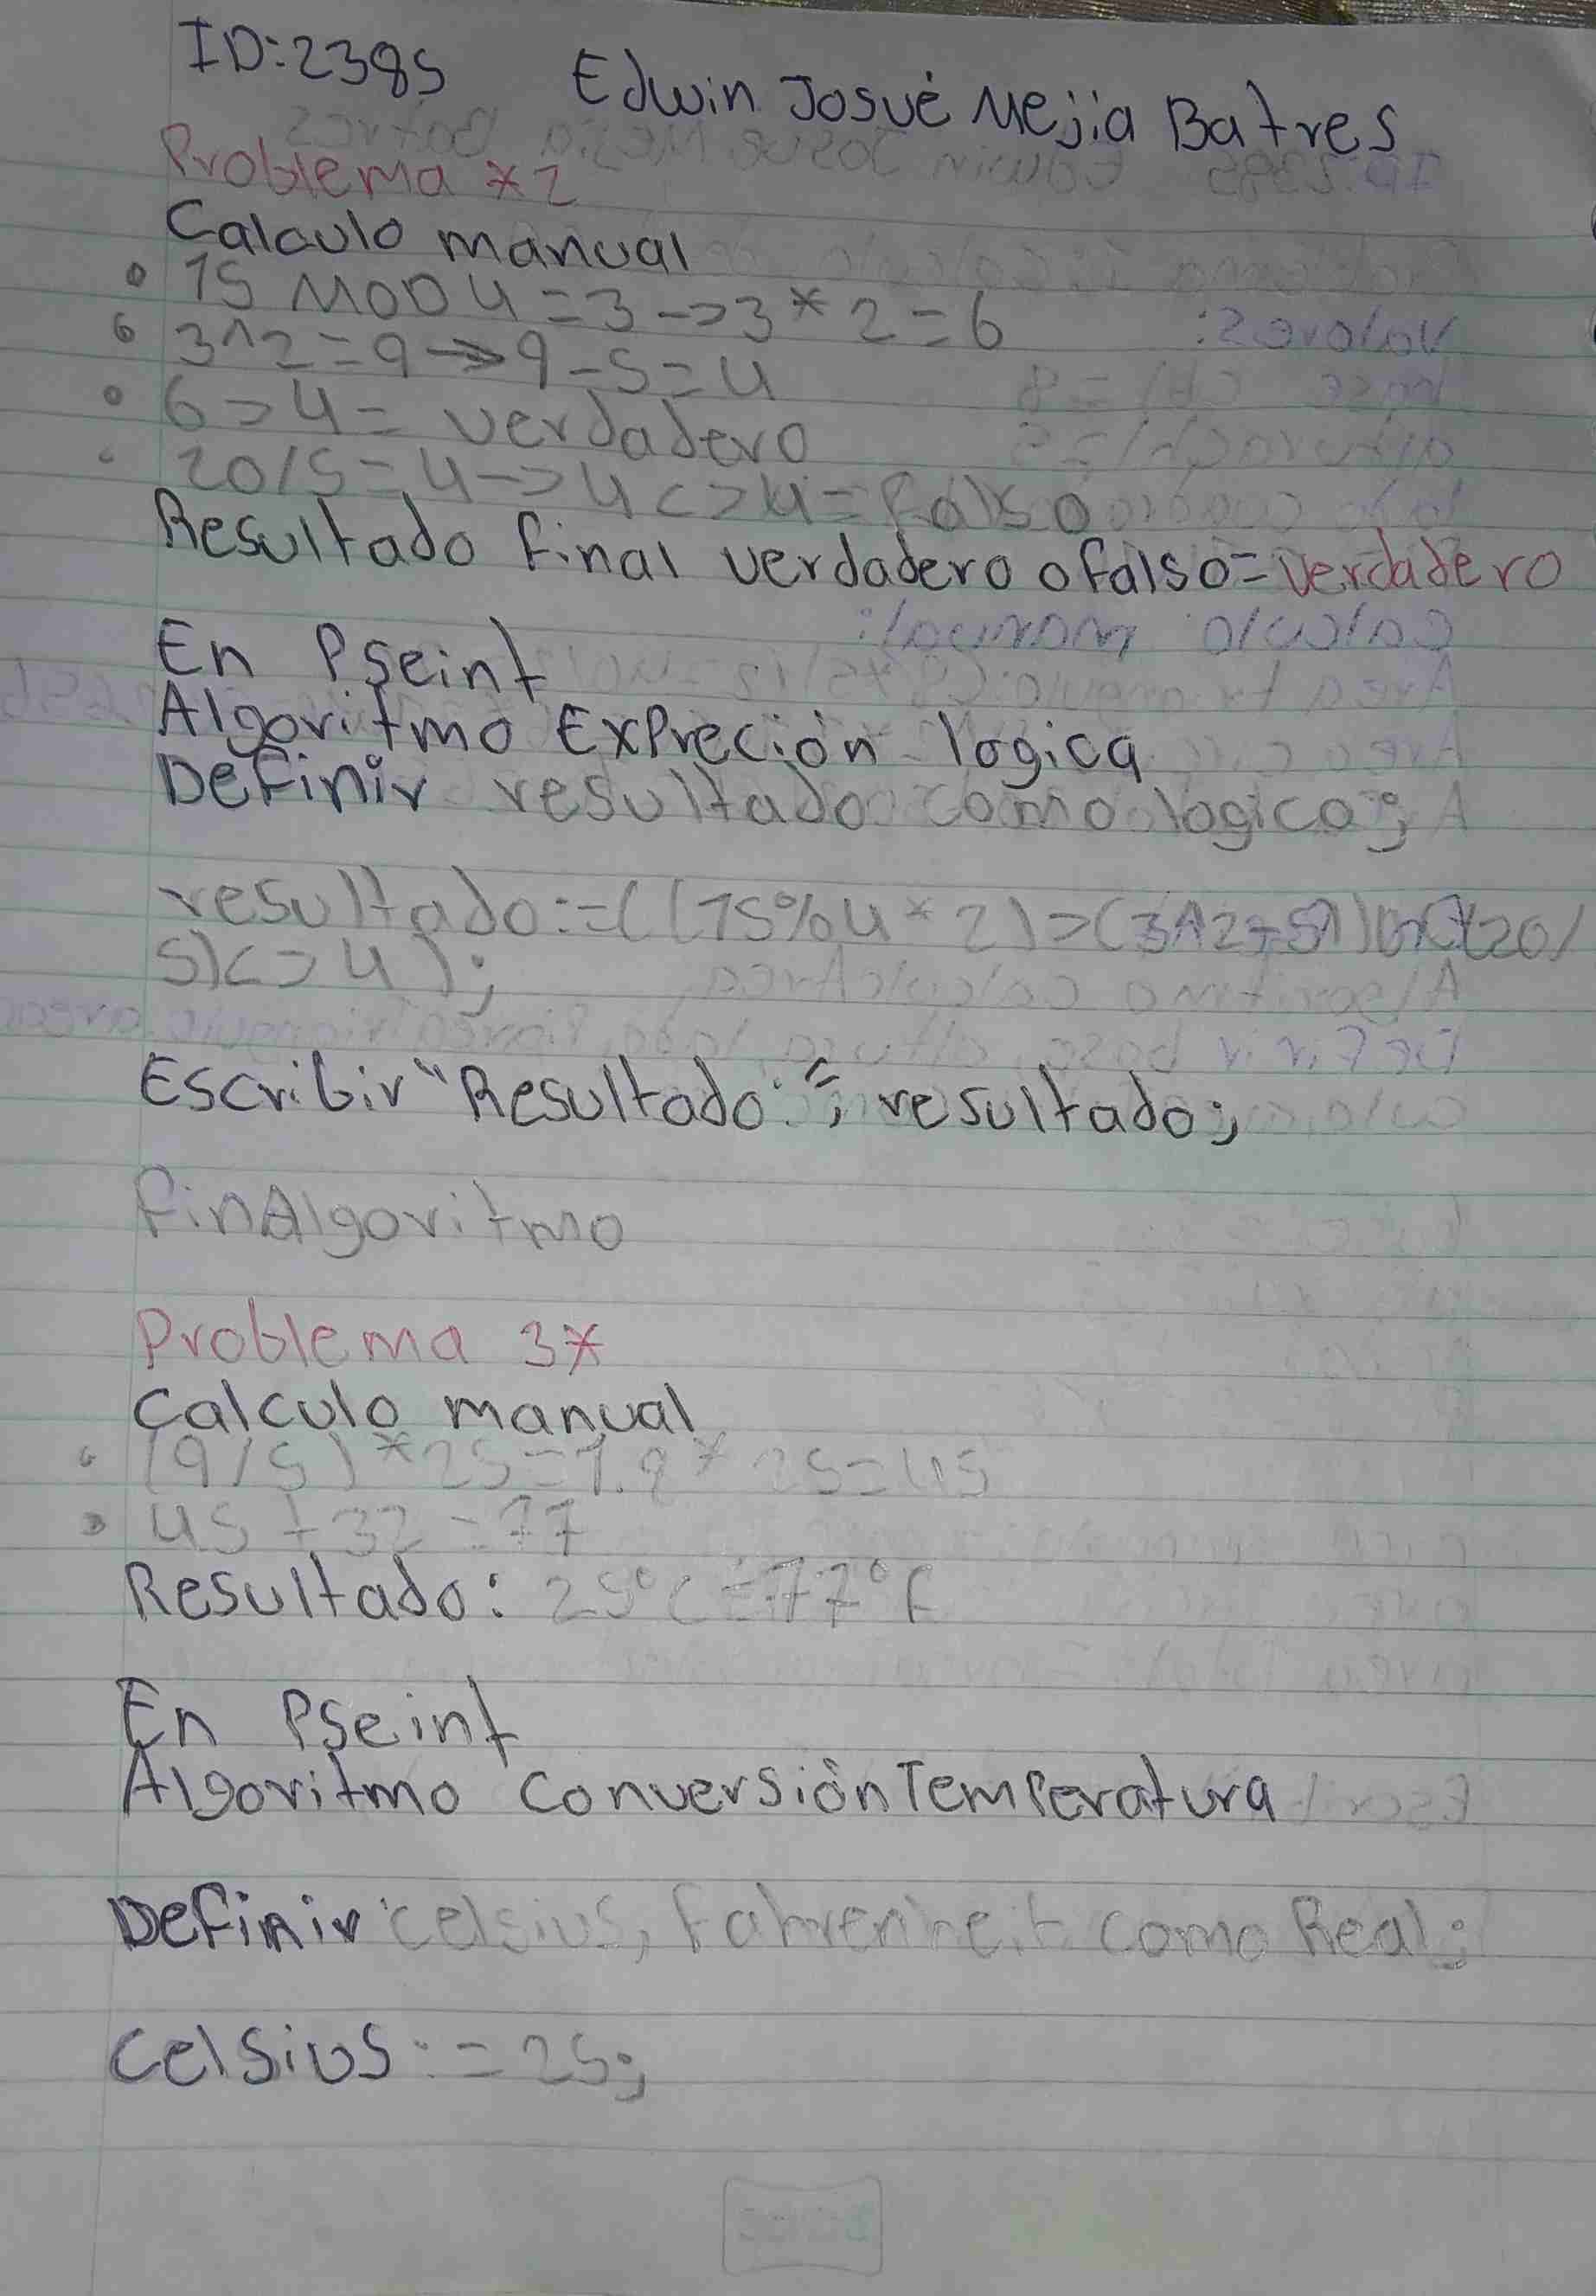 ID:2385 Edwin Josué Mejia Batres
Problema *2
Calculo manual
15 MOD 4 = 3 -> 3 * 2 = 6
3^2 = 9 -> 9 - 5 = 4
6 > 4 = verdadero
20/5 = 4 -> 4 <> 4 = falso
Resultado final verdadero o falso = verdadero
En Pseint
Algoritmo Expreción logica
Definir resultado como logico;
resultado := ((15%4*2) > (3^2-5)) Or ((20/
5) <> 4);
Escribir "Resultado:", resultado;
finAlgoritmo
Problema 3*
Calculo manual
(9/5)*25 = 1.8 * 25 = 45
45 + 32 = 77
Resultado: 25°C = 77°F
En Pseint
Algoritmo conversiónTemperatura
Definir celsius, fahrenheit como Real;
celsius := 25;